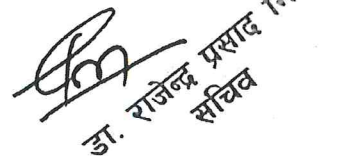 डा. राजेन्द्र प्रसाद
सचिव